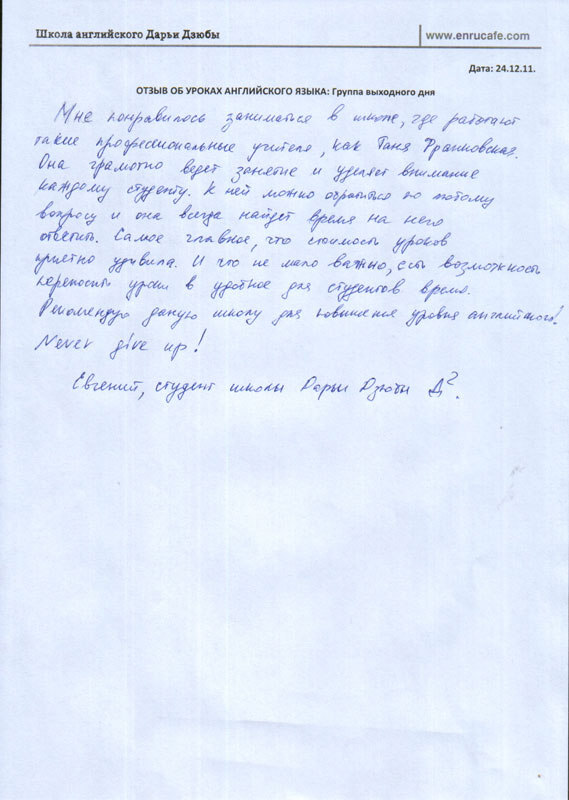 Школа английского Дарьи Дзюбы
www.enrucafe.com
Дата: 24.12.11.
ОТЗЫВ ОБ УРОКАХ АНГЛИЙСКОГО ЯЗЫКА: Группа выходного дня
Мне понравилось заниматься в школе, где работают
такие профессиональные учителя, как Таня Франковская.
Она грамотно ведет занятие и уделяет внимание
каждому студенту. К ней можно обратиться по любому
вопросу и она всегда найдет время на него
ответить. Самое главное, что стоимость уроков
приятно удивила. И что не мало важно, есть возможность
переносить уроки в удобное для студентов время.
Рекомендую даную школу для повышения уровня английского!
Never give up!
Евгений, студент школы Дарьи Дзюбы Д².